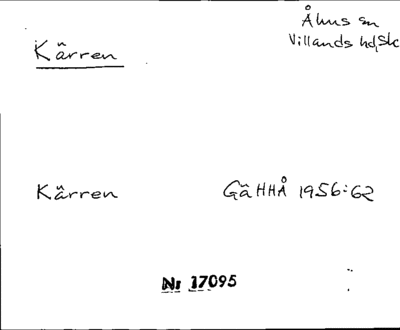 Åhus sn
Kärren
Villands hd, Sk
Kärren GäHHÅ 1956:62
Nr 17095